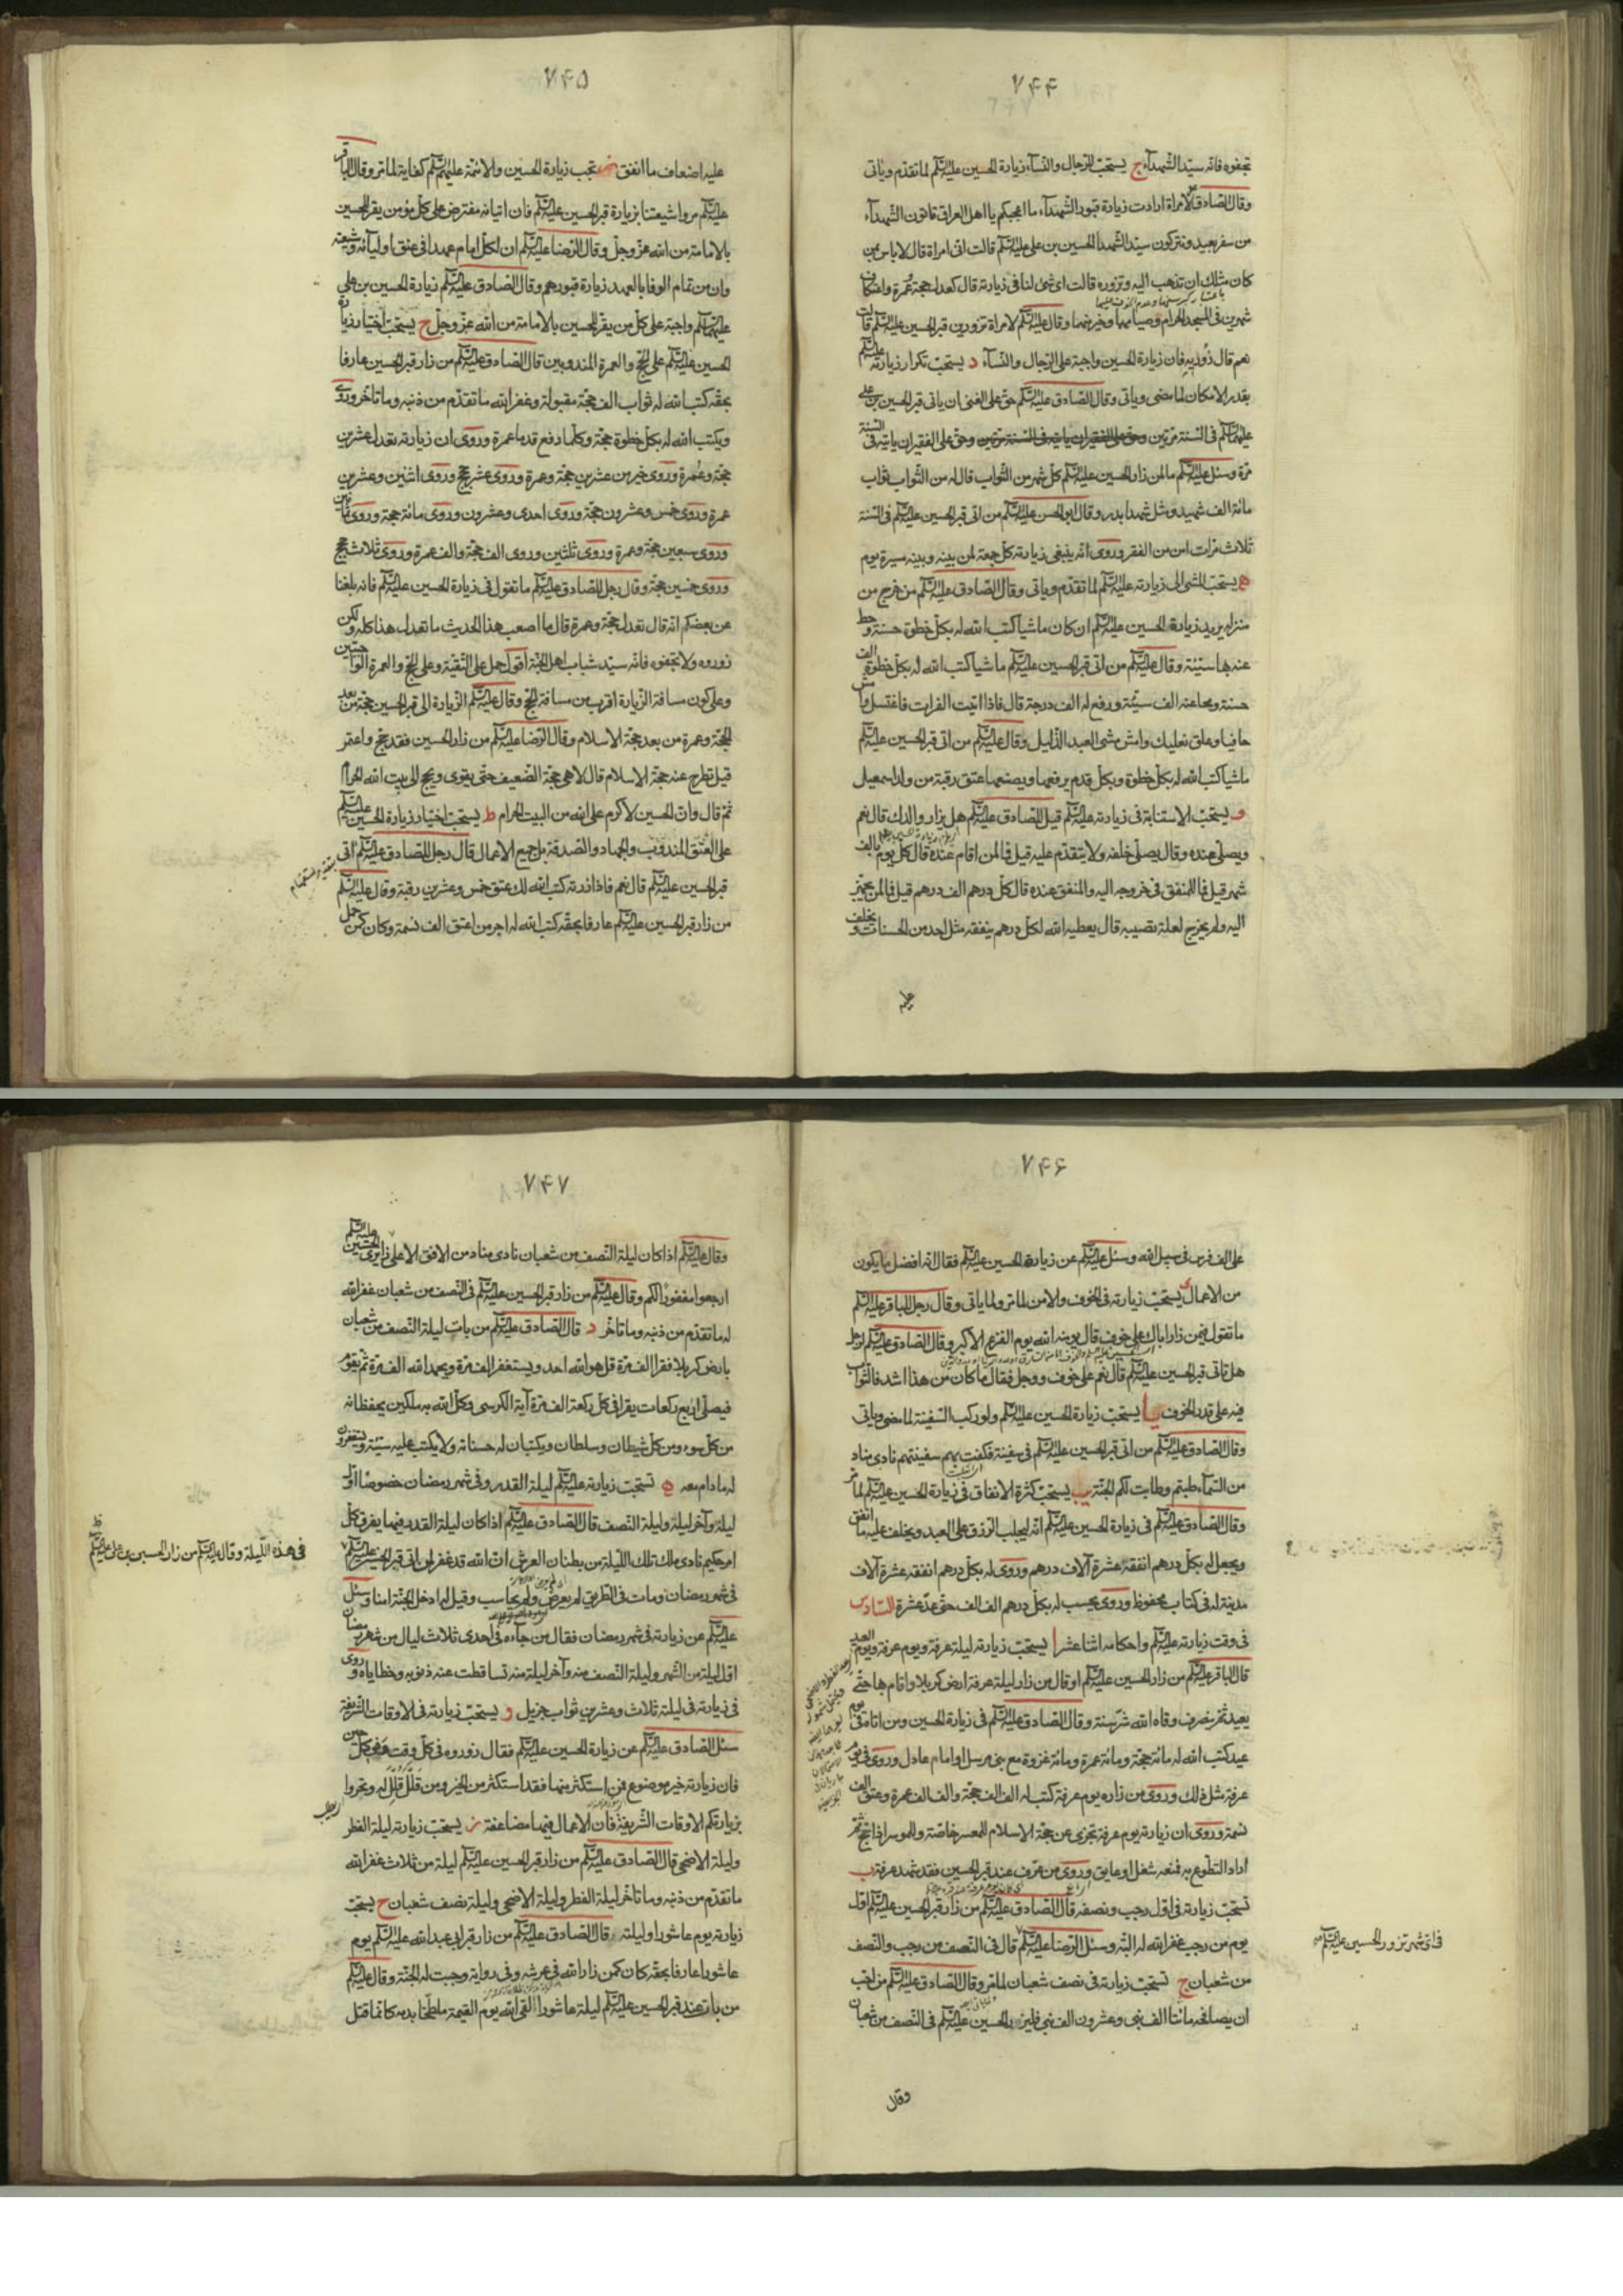 ٧۴۴
تجفوه فانه سيّد الشهدآء ج يستحبّ للرّجال والنّسآء زيارة الحسين عليه السّلم لما تقدّم وياتى
وقال الصّادق ع لامراة ارادت زيارة قبور الشّهدآء ما اعجبكم يا اهل العراق تاتون الشّهدآء
من سفر بعيد وتتركون سيّد الشّهدا الحسين بن على عليه السّلم قالت انى امراة قال لا باس بمن
كان مثلك ان تذهب اليه وتزوره قالت اى شئ لنا فى زيارته قال كعدل حجة وعمرة واعتكاف
شهرين فى المسجد الحرام وصيامهما وخير منهما وقال عليه السّلم لامراة تزورين قبر الحسين عليه السّلم قالت
نعم قال زوريه فان زيارة الحسين واجبة على الرّجال والنّسآء د يستحبّ تكرار زيارته عليه السّلم
بقدر الامكان لما مضى وياتى وقال الصّادق عليه السّلم حقّ على الغنى ان ياتى قبر الحسين بن على
عليهما السّلم فى السّنة مرّتين وحق على الفقير ان ياتيه فى السّنة
مرّة وسئل عليه السّلم ما لمن زار الحسين عليه السّلم كلّ شهر من الثّواب قال له من الثّواب ثواب
مائة الف شهيد مثل شهدا بدر وقال ابو الحسن عليه السّلم من اتى قبر الحسين عليه السّلم فى السّنة
ثلاث مرّات امن من الفقر وروى انّه ينبغى زيارته كلّ جمعة لمن بينه وبينه مسيرة يوم
ه يستحبّ المشى الى زيارته عليه السّلم لما تقدّم وياتى وقال الصّادق عليه السّلم من خرج من
منزله يريد زيارة الحسين عليه السّلم ان كان ماشيا كتب الله له بكلّ خطوة حسنة وحط
عنه بها سيّئة وقال عليه السّلم من اتى قبر الحسين عليه السّلم ماشيا كتب الله له بكلّ خطوة الف
حسنة ومحا عنه الف سيّئة ورفع له الف درجة قال فاذا اتيت الفرات فاغتسل وامش
حافيا وعلق نعليك وامش مشى العبد الذّليل وقال عليه السّلم من اتى قبر الحسين عليه السّلم
ماشيا كتب الله له بكلّ خطوة وبكلّ قدم يرفعها ويضعها عتق رقبة من ولد اسمعيل
و يستحبّ الاستنابة فى زيارته عليه السّلم قيل للصّادق عليه السّلم هل يزار والدك قال نعم
ويصلّى عنده وقال يصلّى خلفه ولا يتقدّم عليه قيل فما لمن اقام عنده قال كلّ يوم بالف
شهر قيل فما للمنفق فى خروجه اليه والمنفق عنده قال كلّ درهم الف درهم قيل فما لمن يجهّز
اليه ولم يخرج لعلة تصيبه قال يعطيه الله لكلّ درهم ينفقه مثل احد من الحسنات ويخلف
عليه
٧۴۵
عليه اضعاف ما انفق ز تجب زيارة الحسين والائمّة عليهم السّلم كفاية لما مرّ وقال الباقر
عليه السّلم مروا شيعتنا بزيارة قبر الحسين عليه السّلم فان اتيانه مفترض على كلّ مؤمن يقرّ للحسين
بالامامة من الله عزّ وجلّ وقال الرّضا عليه السّلم ان لكلّ امام عهدا فى عنق اوليآئه وشيعته
وان من تمام الوفا بالعهد زيارة قبورهم وقال الصّادق عليه السّلم زيارة الحسين بن على
عليهما السّلم واجبة على كلّ من يقرّ للحسين بالامامة من الله عزّ وجلّ ح يستحبّ اختيار زيارة
الحسين عليه السّلم على الحجّ والعمرة المندوبين قال الصّادق عليه السّلم من زار قبر الحسين عارفا
بحقّه كتب الله له ثواب الف حجّة مقبولة وغفر الله ما تقدّم من ذنبه وما تاخّر وروى
ويكتب الله له بكلّ خطوة حجّة وكلّما رفع قدما عمرة وروى ان زيارته تعدل عشرين
حجّة وعمرة وروى خير من عشرين حجّة وعمرة وروى عشر حجج وروى اثنين وعشرين
عمرة وروى خمس وعشرون حجّة وروى احدى وعشرون وروى مائة حجة وروى ثمانين
وروى سبعين حجّة وعمرة وروى ثلثين وروى الف حجّة والف عمرة وروى ثلاث حجج
وروى خمسين حجّة وقال رجل للصّادق عليه السّلم ما تقول فى زيارة الحسين عليه السّلم فانه بلغنا
عن بعضكم انّه قال تعدل حجّة وعمرة قال ما اصعب هذا الحديث ما تعدل هذا كله ولكن
زوروه ولا تجفوه فانّه سيّد شباب اهل الجنّة اقول حمل على التّقيّة وعلى الحجّ والعمرة الواجبين
وعلى كون مسافة الزّيارة اقرب من مسافة الحجّ وقال عليه السّلم الزّيارة الى قبر الحسين حجّة من بعد
الحجّة وعمرة من بعد حجّة الاسلام وقال الرّضا عليه السّلم من زار الحسين فقد حجّ واعتمر
قيل تطرح عنه حجّة الاسلام قال لا هى حجّة الضّعيف حتّى يقوى ويحج الى بيت الله الحرام
ثمّ قال وانّ الحسين لاكرم على الله من البيت الحرام ط يستحبّ اختيار زيارة الحسين عليه السّلم
على العتق المندوب والجهاد والصّدقة بل جميع الاعمال قال رجل للصّادق عليه السّلم اتى
قبر الحسين عليه السّلم قال نعم فاذا زرته كتب الله لك عتق خمس وعشرين رقبة وقال عليه السّلم
من زار قبر الحسين عليه السّلم عارفا بحقّه كتب الله له اجر من اعتق الف نسمة وكان كمن حمل
٧۴۶
على الف فرس فى سبيل الله وسئل عليه السّلم عن زيارة الحسين عليه السّلم فقال انّه افضل ما يكون
من الاعمال ى يستحبّ زيارته فى الخوف والامن لما مرّ ولما ياتى وقال رجل للباقر عليه السّلم
ما تقول فيمن زار اباك على خوف قال يومنه الله يوم الفزع الاكبر وقال الصّادق عليه السّلم لرجل
هل تاتى قبر الحسين عليه السّلم قال نعم على خوف ووجل فقال ما كان من هذا اشد فالثّواب
فيه على قدر الخوف يا يستحبّ زيارة الحسين عليه السّلم ولو ركب السّفينة لما مضى وياتى
وقال الصّادق عليه السّلم من اتى قبر الحسين عليه السّلم فى سفينة فكفت بهم سفينتهم نادى مناد
من السّمآء طبتم وطابت لكم الجنّة يب يستحبّ كثرة الانفاق فى زيارة الحسين عليه السّلم لما مرّ
وقال الصّادق عليه السّلم فى زيارة الحسين عليه السّلم انّه ليجلب الرّزق على العبد ويخلف عليه ما انفق
ويجعل له بكلّ درهم انفقه عشرة آلاف درهم وروى له بكلّ درهم انفقه عشرة آلاف
مدينة له فى كتاب محفوظ وروى يحسب له بكلّ درهم الف الف حتّى عدّ عشرة السّادس
فى وقت زيارته عليه السّلم واحكامه اثنا عشر ا يستحبّ زيارته ليلة عرفة ويوم عرفة ويوم العيد
قال الباقر عليه السّلم من زار الحسين عليه السّلم او قال من زار ليلة عرفة ارض كربلا واقام بها حتّى
يعيد ثمّ ينصرف وقاه الله شرّ سنته وقال الصّادق عليه السّلم فى زيارة الحسين ومن اتاه فى يوم
عيد كتب الله له مائة حجّة ومائة عمرة ومائة غزوة مع نبى مرسل او امام عادل وروى فى يوم
عرفة مثل ذلك وروى من زاره يوم عرفة كتب له الف الف حجّة والف الف عمرة وعتق الف
نسمة وروى ان زيارته يوم عرفة تجزى عن حجّة الاسلام للمعسر خاصّة وللموسر اذا حجّ ثمّ
اراد التطوّع به فمنعه شغل او عايق وروى من عرّف عند قبر الحسين فقد شهد عرفة ب
تستحبّ زيارته فى اوّل رجب ونصفه قال الصّادق عليه السّلم من زار قبر الحسين عليه السّلم اوّل
يوم من رجب غفر الله له البتّه وسئل الرّضا عليه السّلم قال فى النّصف من رجب والنّصف
فى اى شهر تزور الحسين عليه السّلم
من شعبان ج تستحبّ زيارته فى نصف شعبان لما مرّ وقال الصّادق عليه السّلم من احب
ان يصافحه مائتا الف نبى وعشرون الف نبى فليزر الحسين عليه السّلم فى النّصف من شعبان
وقال
٧۴٧
وقال عليه السّلم اذا كان ليلة النّصف من شعبان نادى مناد من الافق الاعلى زايرى الحسين عليه السّلم
ارجعوا مغفورا لكم وقال عليه السّلم من زار قبر الحسين عليه السّلم فى النّصف من شعبان غفر الله
له ما تقدّم من ذنبه وما تاخّر د قال الصّادق عليه السّلم من بات ليلة النّصف من شعبان
بارض كربلا فقرا الف مرّة قل هو الله احد ويستغفر الف مرّة ويحمد الله الف مرّة ثمّ يقوم
فيصلّى اربع ركعات يقرا فى كلّ ركعة الف مرّة آية الكرسى وكّل الله به ملكين يحفظانه
من كلّ سوء ومن كلّ شيطان وسلطان ويكتبان له حسناته ولا يكتب عليه سيّئة ويستغفرون
له ما دام معه ه تستحبّ زيارته عليه السّلم ليلة القدر وفى شهر رمضان خصوصا اوّل
ليلة وآخر ليلة وليلة النّصف قال الصّادق عليه السّلم اذا كان ليلة القدر فيها يفرق كلّ
امر حكيم نادى ملك تلك اللّيلة من بطنان العرش انّ الله قد غفر لمن اتى قبر الحسين عليه السّلم
فى هذه اللّيلة وقال عليه السّلم من زار الحسين بن على عليه السّلم
فى شهر رمضان ومات فى الطّريق لم يعرض ولم يحاسب وقيل له ادخل الجنّة امنا وسئل
عليه السّلم عن زيارته فى شهر رمضان فقال من جآءه فى احدى ثلاث ليال من شهر رمضان
اوّل ليلة من الشّهر وليلة النّصف منه وآخر ليلة منه تساقطت عنه ذنوبه وخطاياه وروى
فى زيارته فى ليلة ثلاث وعشرين ثواب جزيل و يستحبّ زيارته فى الاوقات الشّريفة
سئل الصّادق عليه السّلم عن زيارة الحسين عليه السّلم فقال زوروه فى كلّ وقت وفى كلّ حين
فان زيارته خير موضوع فمن استكثر منها فقد استكثر من الخير ومن قلّل قلّل له وتحرّوا
بزيارتكم الاوقات الشّريفة فان الاعمال فيها مضاعفة ز يستحبّ زيارته ليلة الفطر
وليلة الاضحى قال الصّادق عليه السّلم من زار قبر الحسين عليه السّلم ليلة من ثلاث غفر الله
ما تقدّم من ذنبه وما تاخّر ليلة الفطر وليلة الاضحى وليلة نصف شعبان ح يستحبّ
زيارته يوم عاشورا وليلته قال الصّادق عليه السّلم من زار قبر ابى عبد الله عليه السّلم يوم
عاشورا عارفا بحقّه كان كمن زار الله فى عرشه وفى رواية وجبت له الجنّة وقال عليه السّلم
من بات عند قبر الحسين عليه السّلم ليلة عاشورا القى الله يوم القيمة ملطّخا بدمه كانما قتل